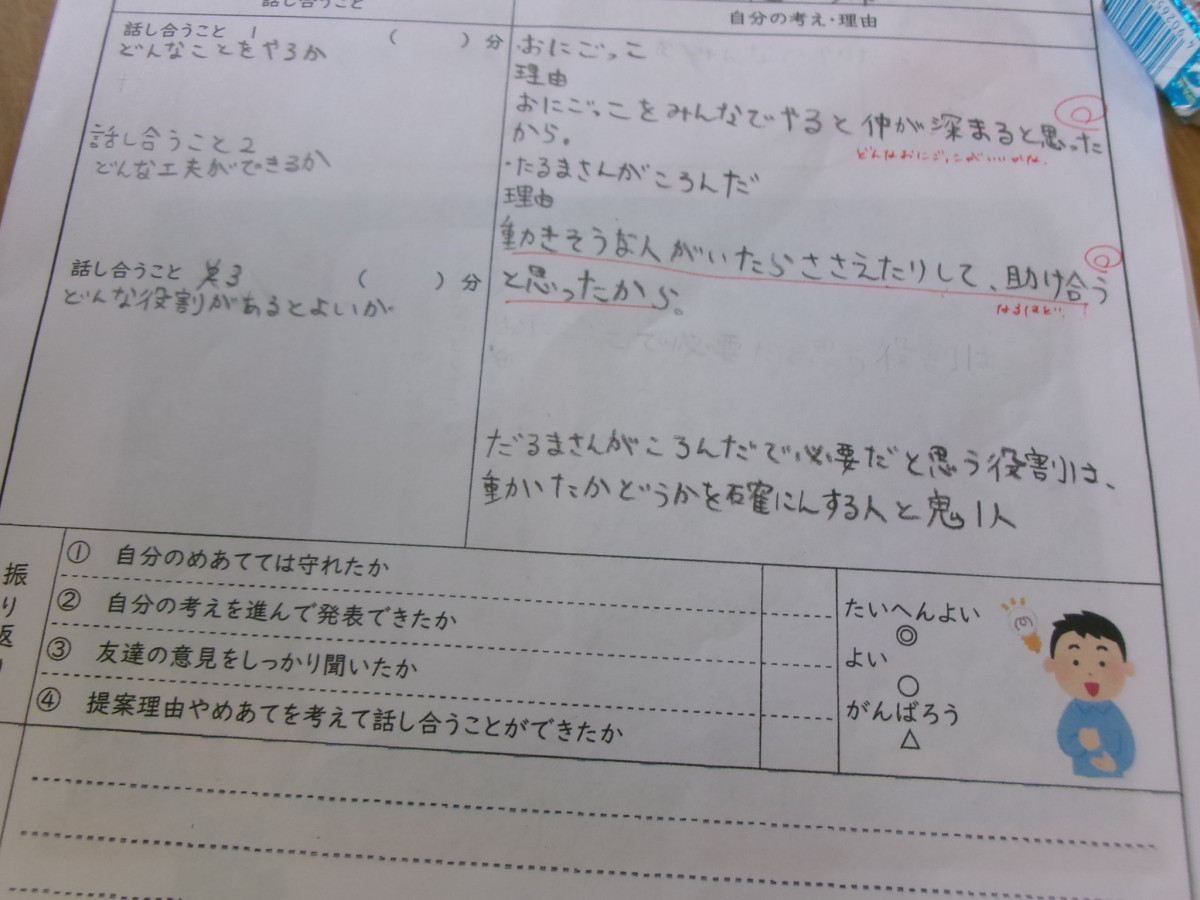 話し合うこと
自分の考え・理由
話し合うこと 1 ( )分
どんなことをやるか
話し合うこと2
どんな工夫ができるか
話し合うこと 3 ( )分
どんな役割があるとよいか
・おにごっこ
理由
おにごっこをみんなでやると仲が深まると思った
から。
どんなおにごっこがいいかな。
・だるまさんがころんだ
理由
動きそうな人がいたらささえたりして、助け合う
と思ったから。
なるほど!
だるまさんがころんだで必要だと思う役割は、
動いたかどうかを確にんする人と鬼1人
振り返り
① 自分のめあてては守れたか
② 自分の考えを進んで発表できたか
③ 友達の意見をしっかり聞いたか
④ 提案理由やめあてを考えて話し合うことができたか
たいへんよい
◎
よい
○
がんばろう
△